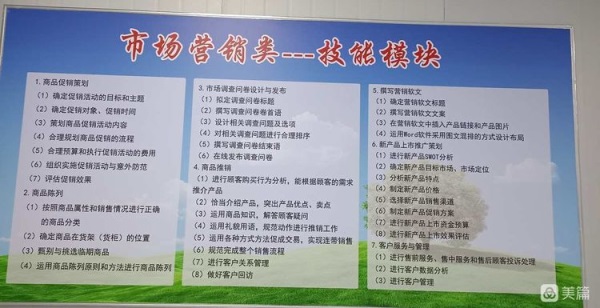 市场营销类---技能模块
1.商品促销策划
（1）确定促销活动的目标和主题
（2）确定促销对象、促销时间
（3）策划商品促销活动内容
（4）合理规划商品促销的流程
（5）合理预算和执行促销活动的费用
（6）组织实施促销活动与意外防范
（7）评估促销效果
2.商品陈列
（1）按照商品属性和销售情况进行正确
的商品分类
（2）确定商品在货架（货柜）的位置
（3）甄别与挑选临期商品
（4）运用商品陈列原则和方法进行商品陈列
3.市场调查问卷设计与发布
（1）拟定调查问卷标题
（2）撰写调查问卷卷首语
（3）设计相关调查问题及选项
（4）对相关调查问题进行合理排序
（5）撰写调查问卷结束语
（6）在线发布调查问卷
4.商品推销
（1）进行顾客购买行为分析，能根据顾客的需求
推介产品
（2）恰当介绍产品，突出产品优点、卖点
（3）运用商品知识，解答顾客疑问
（4）运用礼貌用语，规范动作进行推销工作
（5）运用各种方式方法促成交易，实现连带销售
（6）规范完成整个销售流程
（7）进行客户关系管理
（8）做好客户回访
5.撰写营销软文
（1）确定营销软文标题
（2）撰写营销软文文案
（3）在营销软文中插入产品链接和产品图片
（4）运用Word软件采用图文混排的方式设计布局
6.新产品上市推广策划
（1）进行新产品SWOT分析
（2）确定新产品目标市场、市场定位
（3）分析新产品特点
（4）制定新产品价格
（5）选择新产品销售渠道
（6）制定新产品促销方案
（7）进行新产品上市资金预算
（8）进行新产品上市效果评估
7.客户服务与管理
（1）进行售前服务、售中服务和售后顾客投诉处理
（2）进行客户数据分析
（3）进行客户管理
美篇